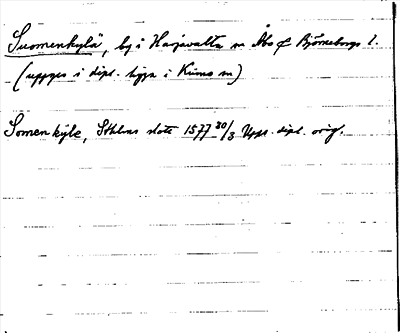 Suomenkylä, by i Harjavalta sn Åbo o Björneborgs l.
(uppges i dipl. ligga i Kumo sn)
Somenkÿle, Sthlms slott 1577 30/3 Upps. dipl. orig.